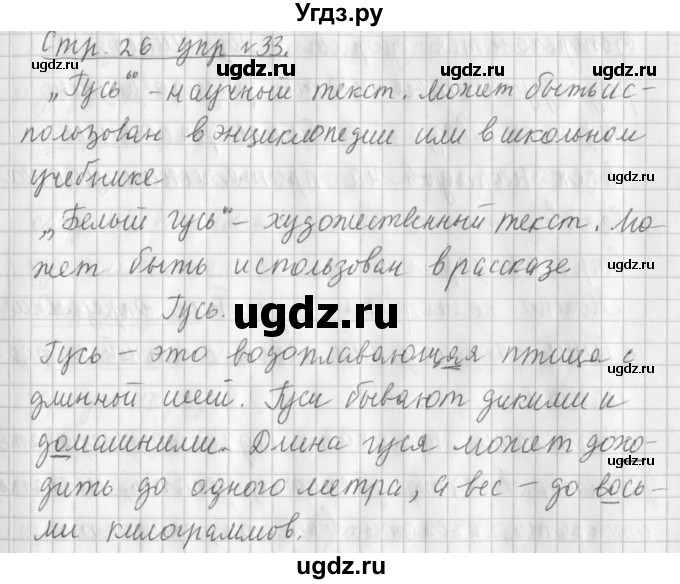 Угдз.ру
Стр. 26 упр №33.
ugdz.ru ugdz.ru
„Гусь“ – научный текст. может быть ис-
ugdz.ru
пользован в энциклопедии или в школьном
учебнике
ugdz.ru
„Белый гусь“ – художественный текст. Мо-
ugdz.ru
жет быть использован в рассказе
Гусь.
ugdz.ru
Гусь – это водоплавающая птица с
ugdz.ru
длинной шеей. Гуси бывают дикими и
домашними. Длина гуся может дохо-
ugdz.ru
дить до одного метра, а вес – до вось-
ми килограммов.
ugdz.ru ugdz.ru